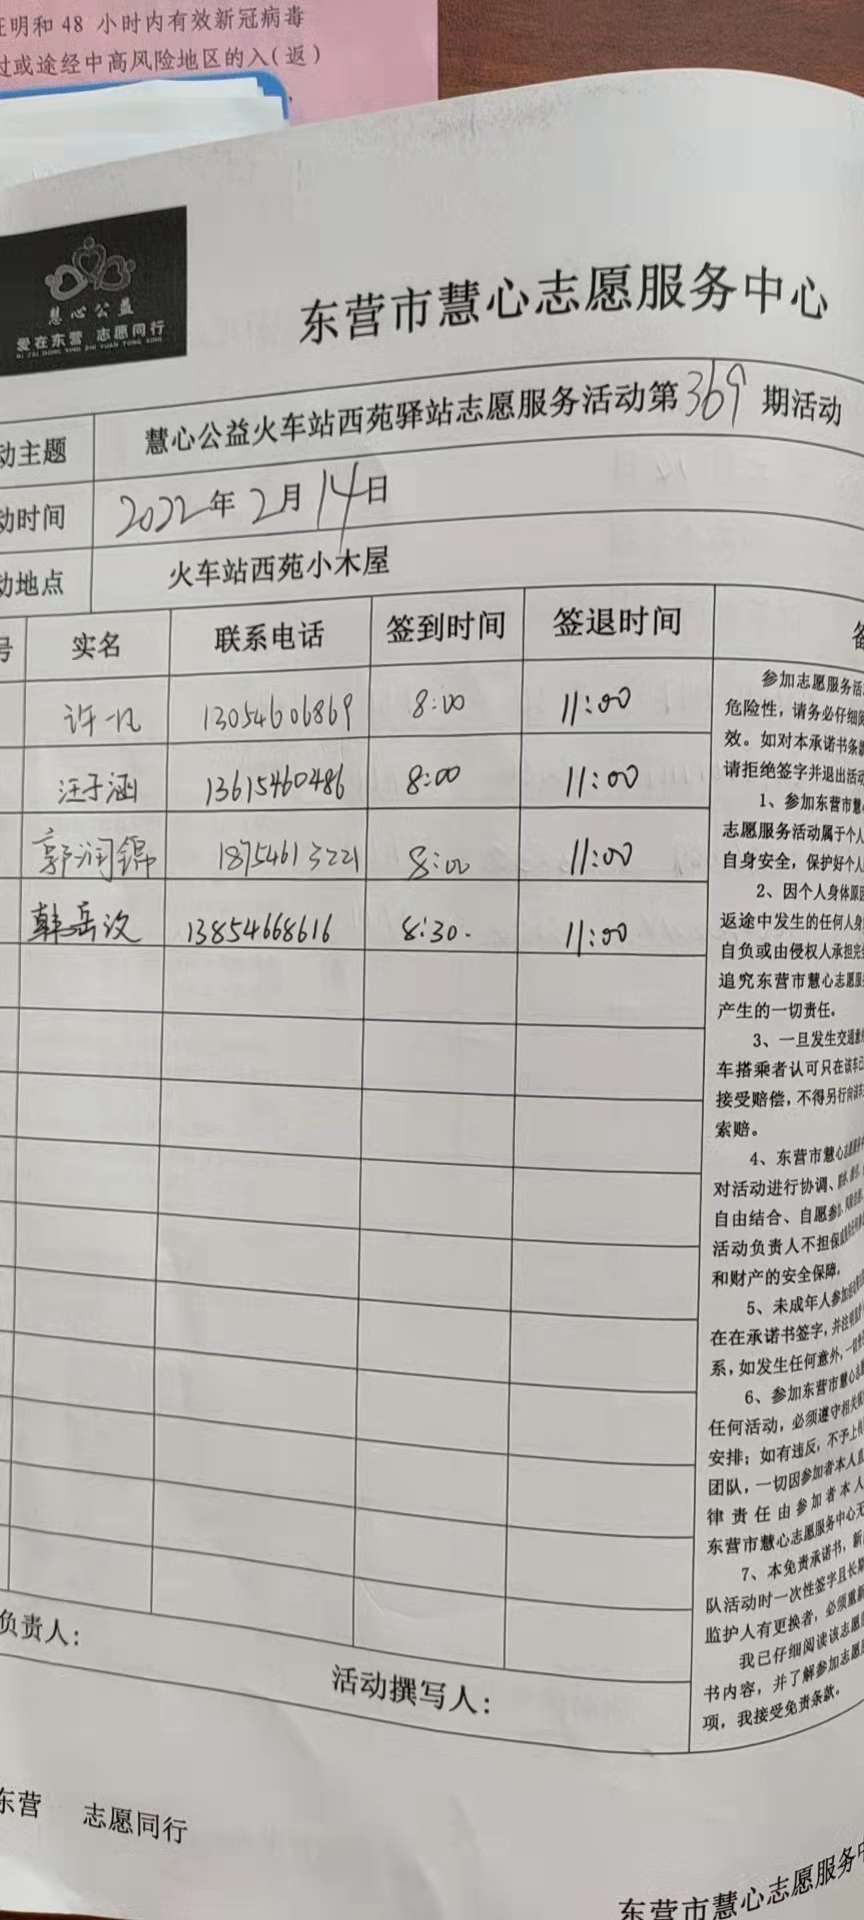 证明和 48 小时内有效新冠病毒
过或途经中高风险地区的入(返)
慧心公益
爱在东营 志愿同行
AI ZAI DONG YING ZHI YUAN TONG XING
东营市慧心志愿服务中心
动主题 慧心公益火车站西苑驿站志愿服务活动第369期活动
动时间 2022年2月14日
动地点 火车站西苑小木屋
号 实名 联系电话 签到时间 签退时间 备
许一凡 13054606869 8:00 11:00
汪子涵 13615460486 8:00 11:00
郭润锦 18754613221 8:00 11:00
韩岳汝 13854668616 8:30. 11:00
参加志愿服务活
危险性，请务必仔细阅
效。如对本承诺书条款
请拒绝签字并退出活动
1、参加东营市慧心
志愿服务活动属于个人
自身安全，保护好个人
2、因个人身体原因
返途中发生的任何人身
自负或由侵权人承担完
追究东营市慧心志愿服
产生的一切责任。
3、一旦发生交通意
车搭乘者认可只在该车
接受赔偿，不得另行向该车
索赔。
4、东营市慧心志愿服务
对活动进行协调、
自由结合、自愿参
活动负责人不担保
和财产的安全保障。
5、未成年人参加
在在承诺书签字，并注明
系，如发生任何意外，一切
6、参加东营市慧心志愿
任何活动，必须遵守相关
安排；如有违反，不予上
团队，一切因参加者本人
律责任由参加者本人
东营市慧心志愿服务中心无
7、本免责承诺书，新
队活动时一次性签字且长期
监护人有更换者，必须重新
我已仔细阅读该志愿
书内容，并了解参加志愿
项，我接受免责条款。
负责人：
活动撰写人：
东营 志愿同行
东营市慧心志愿服务中